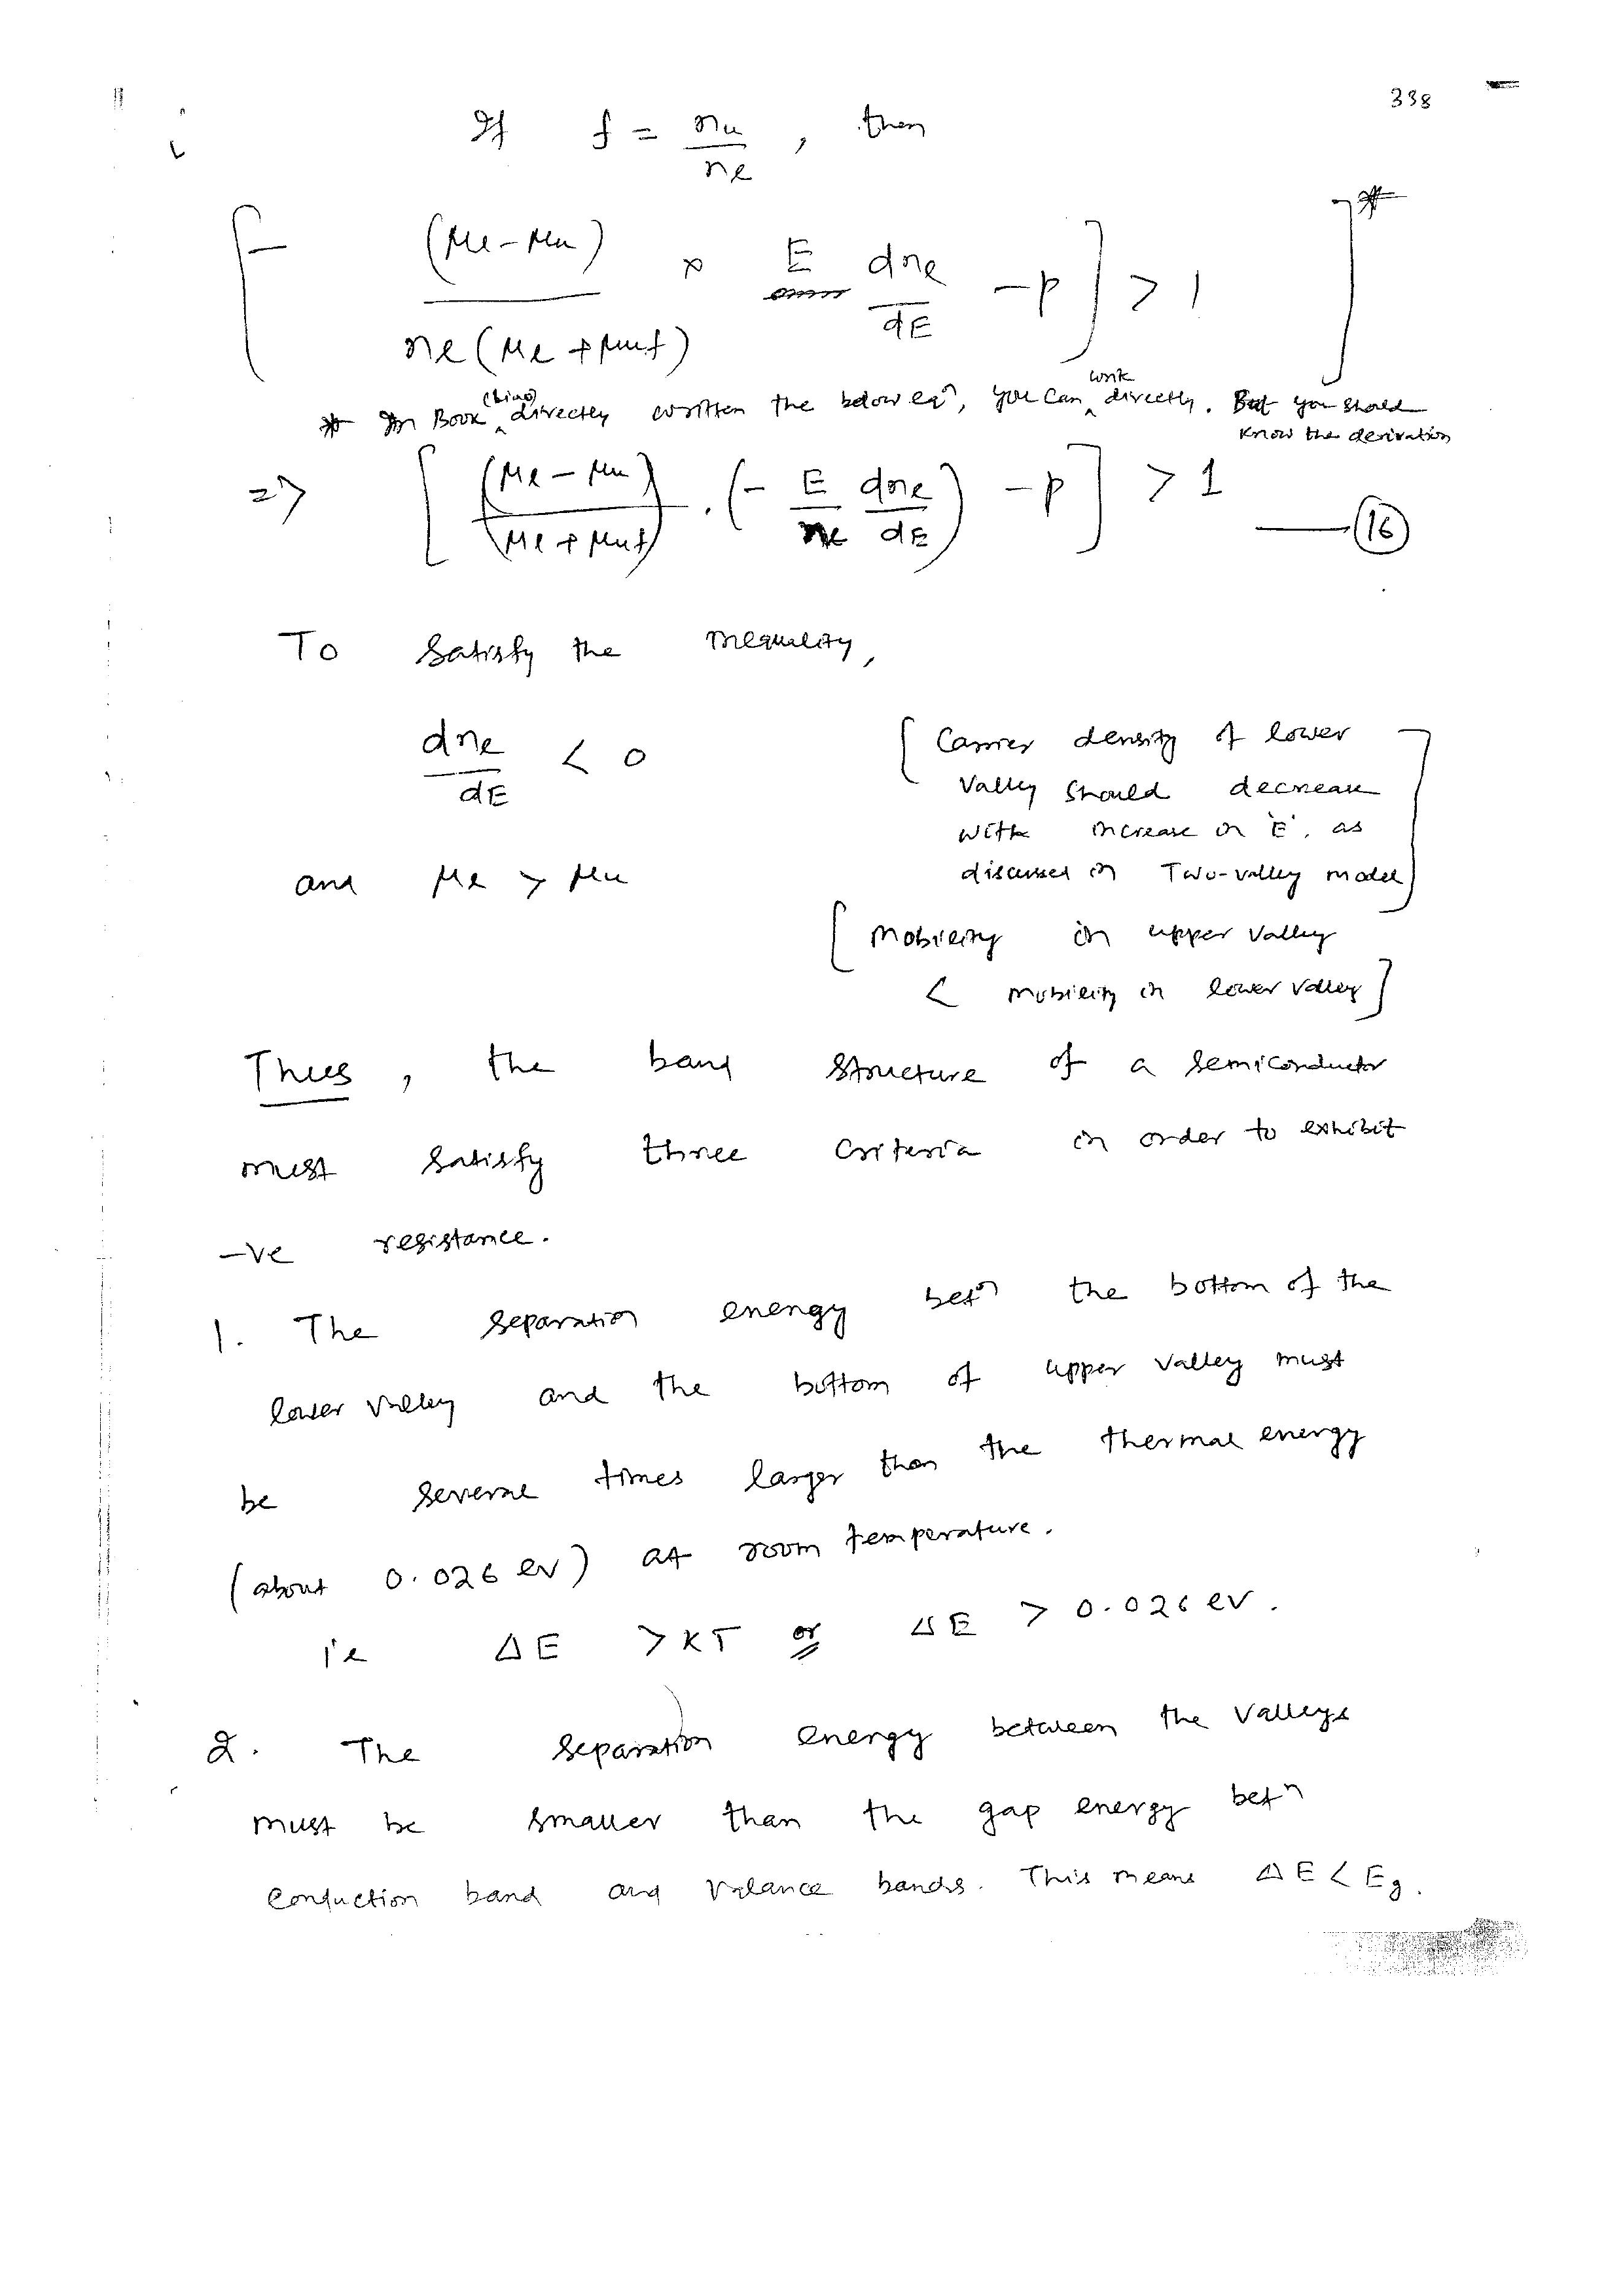 338
If f = nu/nl , then
[ - (μl - μu) / nl (μl + μu f) × E dnl/dE - p ] > 1 ] *
* In Book (Liao) directly written the below eqn, you can write directly. But you should know the derivation
=> [ (μl - μu)/(μl + μu f) . (- E/nl dnl/dE) - p ] > 1 — (16)
To satisfy the inequality,
dnl/dE < 0
[ Carrier density of lower
valley should decrease
with increase in 'E', as
discussed in Two-valley model ]
and μl > μu
[ Mobility in upper valley
< mobility in lower valley ]
Thus, the band structure of a semiconductor
must satisfy three criteria in order to exhibit
-ve resistance.
1. The separation energy betn the bottom of the
lower valley and the bottom of upper valley must
be several times larger than the thermal energy
(about 0.026 eV) at room temperature.
ie ΔE > KT or ΔE > 0.026 eV.
2. The separation energy between the valleys
must be smaller than the gap energy betn
conduction band and valance bands. This means ΔE < Eg.